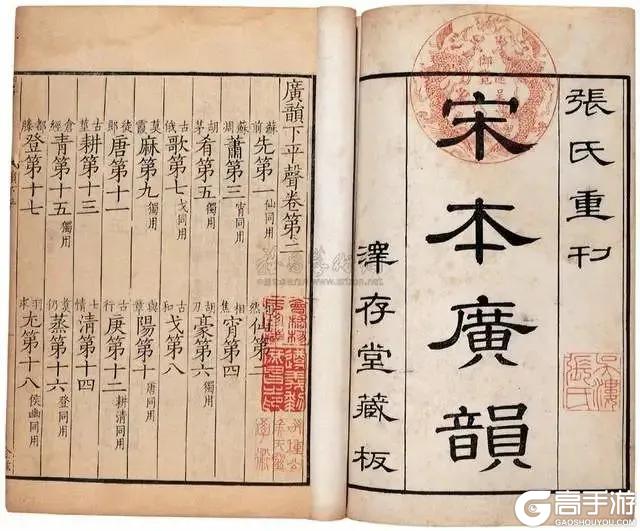 張氏重刊
宋本廣韻
澤存堂藏板
廣韻下平聲卷第二
蘇前先第一仙同用
仙第二
蘇凋蕭第三宵同用
相焦宵第四
胡茅肴第五獨用
胡刀豪第六獨用
古俄歌第七戈同用
戈第八
莫霞麻第九獨用
與章陽第十唐同用
徒郎唐第十一
古行庚第十二耕清同用
古莖耕第十三
清第十四
倉經青第十五獨用
仍蒸第十六登同用
都滕登第十七
羽求尤第十八侯幽同用
高手游
GAOSHOUYOU.COM